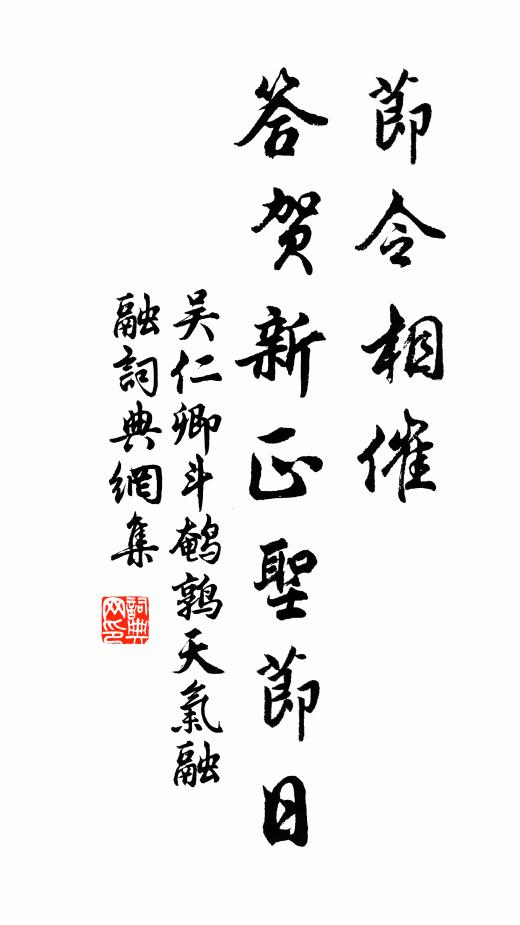 節令相催
答賀新正聖節日
吳仁卿斗鵪鶉天氣融
融詞典網集
詞典
网印